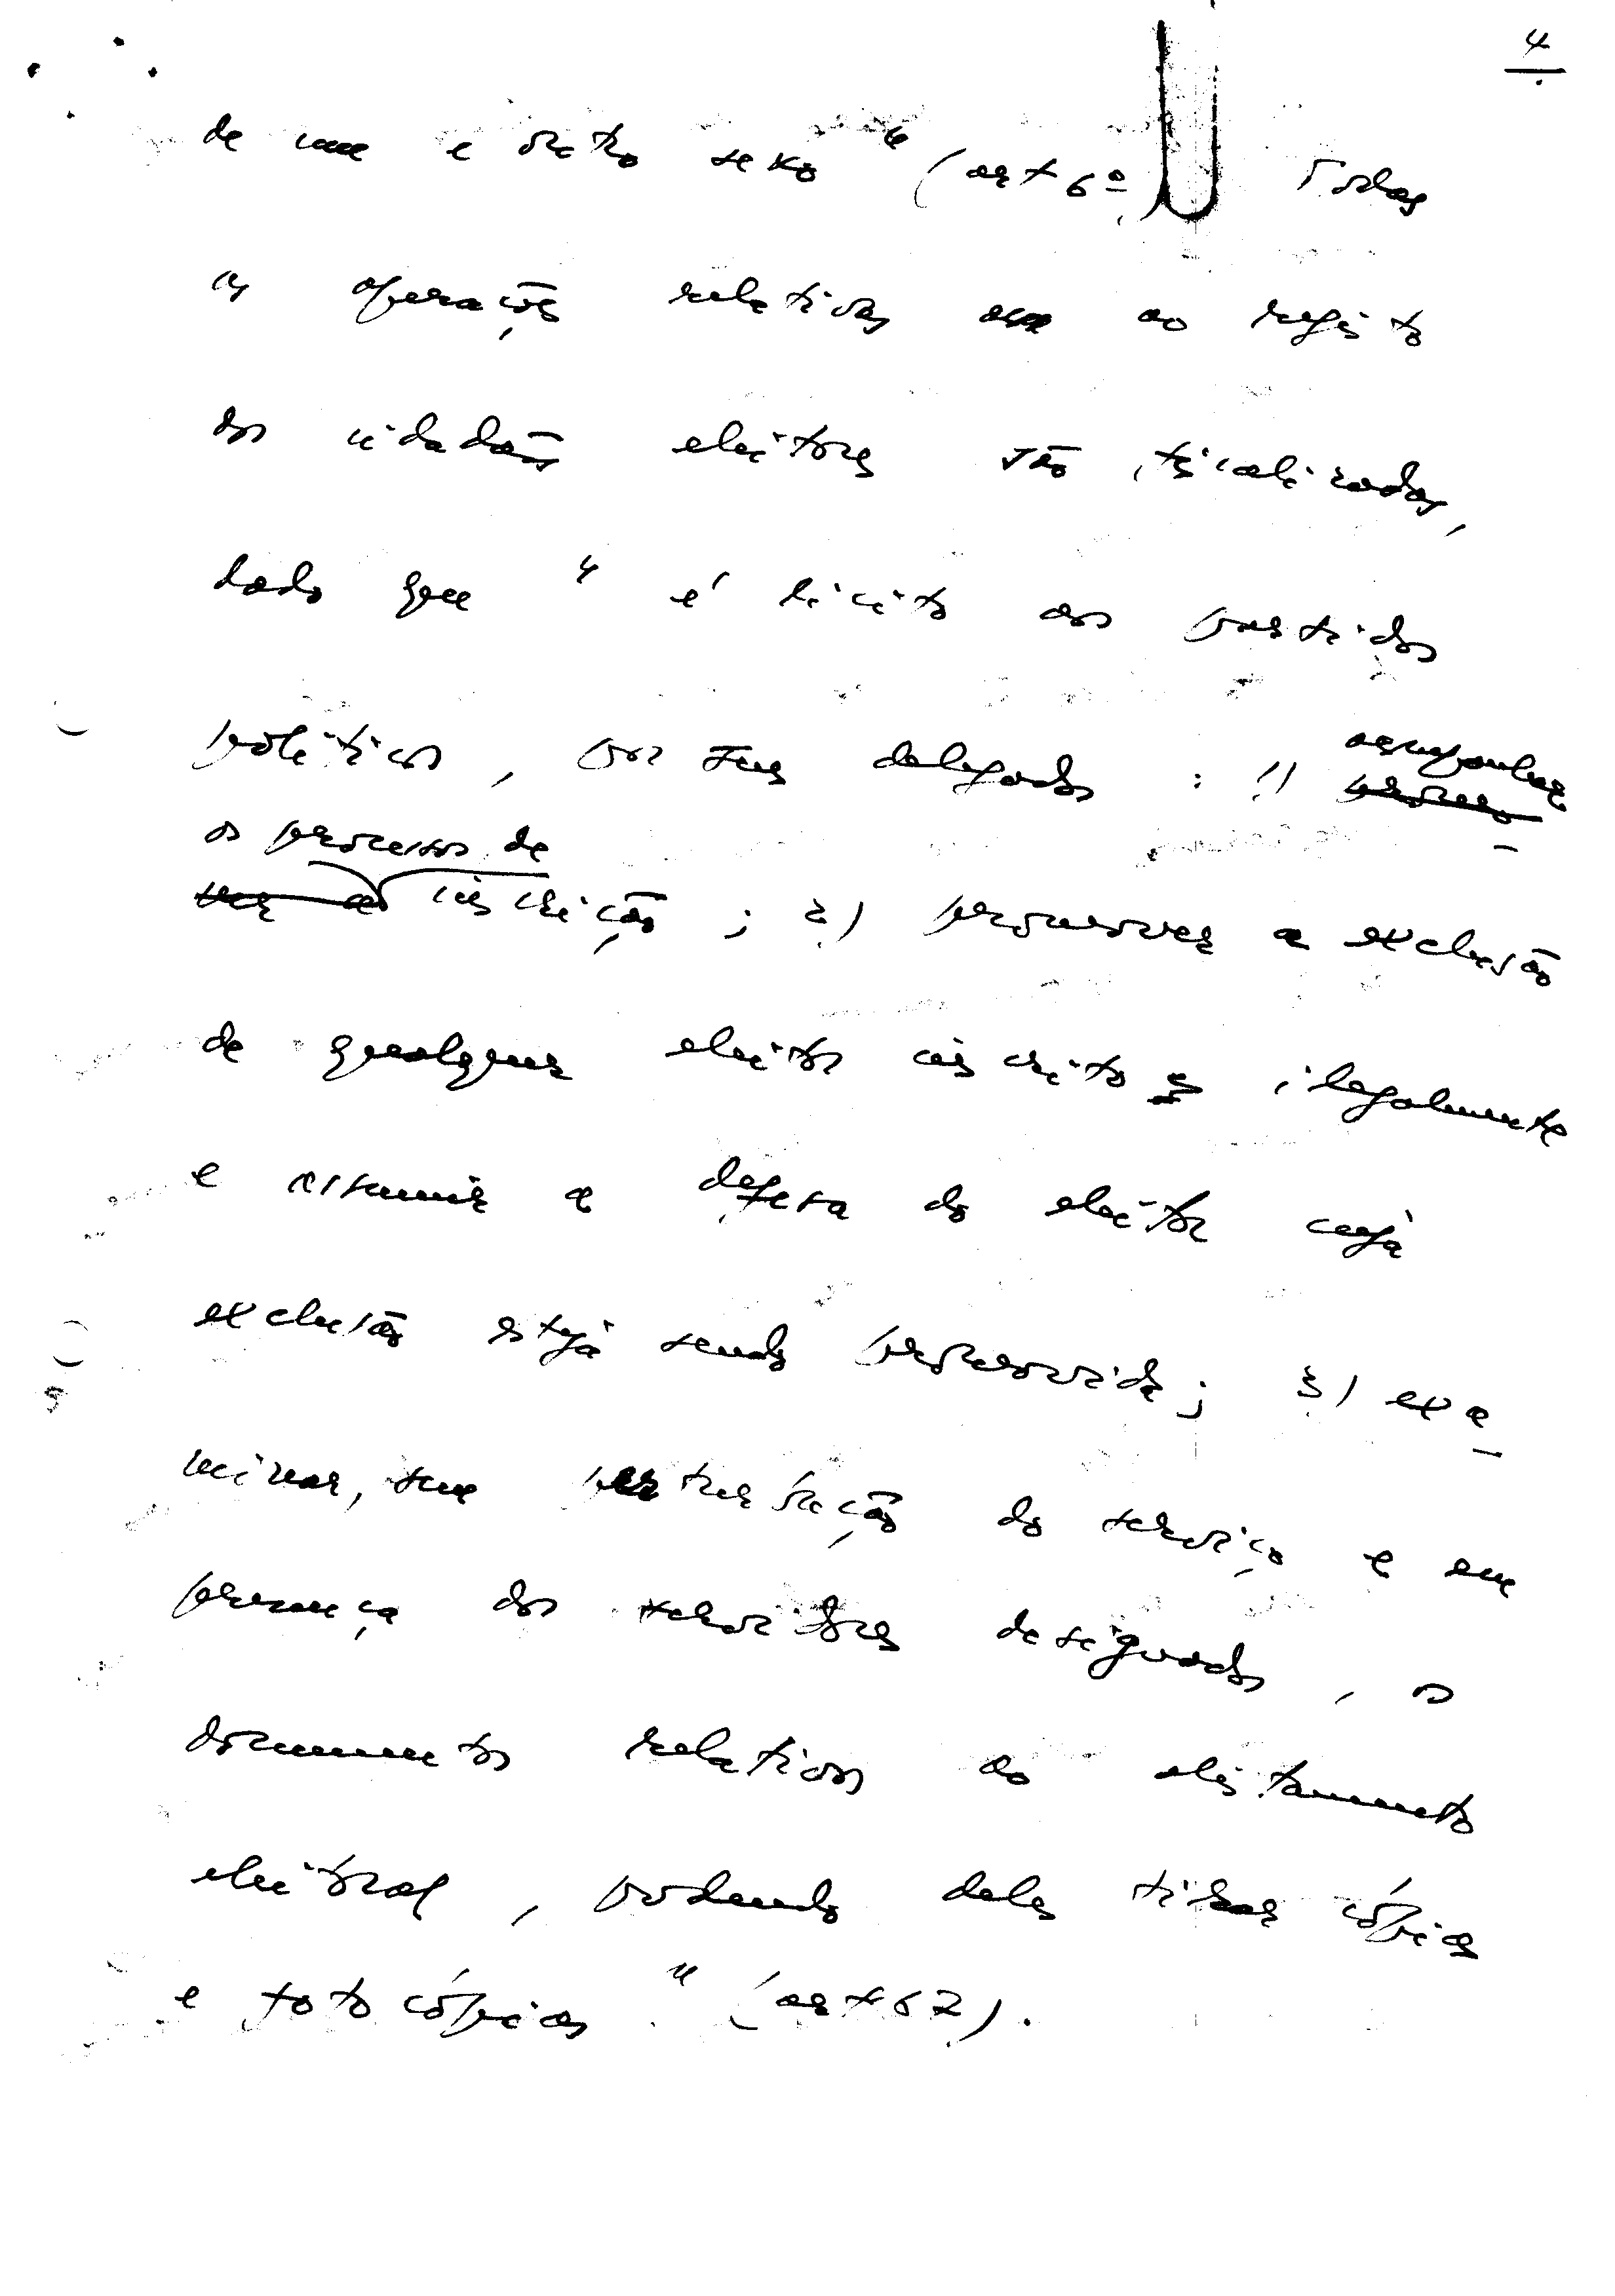 4
de um e outro sexo" (art 6º Todas
as operações relativas ao registo
dos cidadãos eleitores são fiscalizadas,
dado que "é lícito aos partidos
políticos, por seus delegados: 1) acompanhar
os processos de
inscrição; 2) promover a exclusão
de qualquer eleitor inscrito ilegalmente
e assumir a defesa do eleitor cuja
exclusão esteja sendo promovida; 3) exa
minar, sem perturbação do serviço e em
presença dos servidores designados, os
documentos relativos ao alistamento
eleitoral, podendo deles tirar cópias
e fotocópias" (art 67).